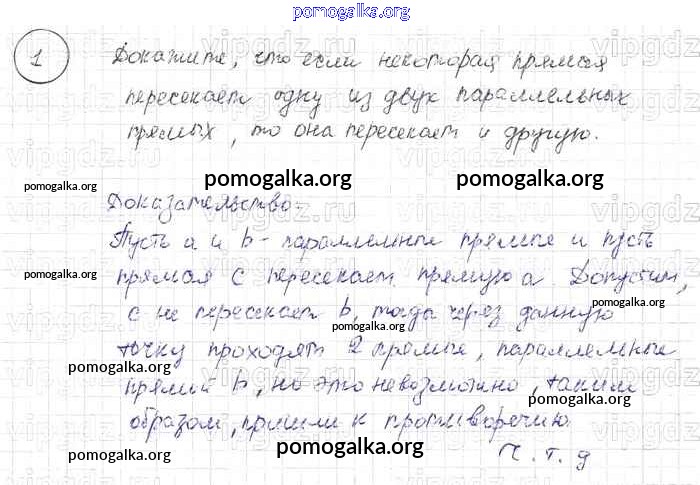 pomogalka.org
1
Докажите, что если некоторая прямая
пересекает одну из двух параллельных
прямых, то она пересекает и другую.
pomogalka.org pomogalka.org
pomogalka.org
Доказательство:
Пусть a и b - параллельные прямые и пусть
pomogalka.org
прямая c пересекает прямую a. Допустим,
pomogalka.org
c не пересекает b, тогда через данную
pomogalka.org
точку проходят 2 прямые, параллельные
pomogalka.org
прямой b, но это невозможно, таким
pomogalka.org
образом, пришли к противоречию.
pomogalka.org pomogalka.org
ч.т.д